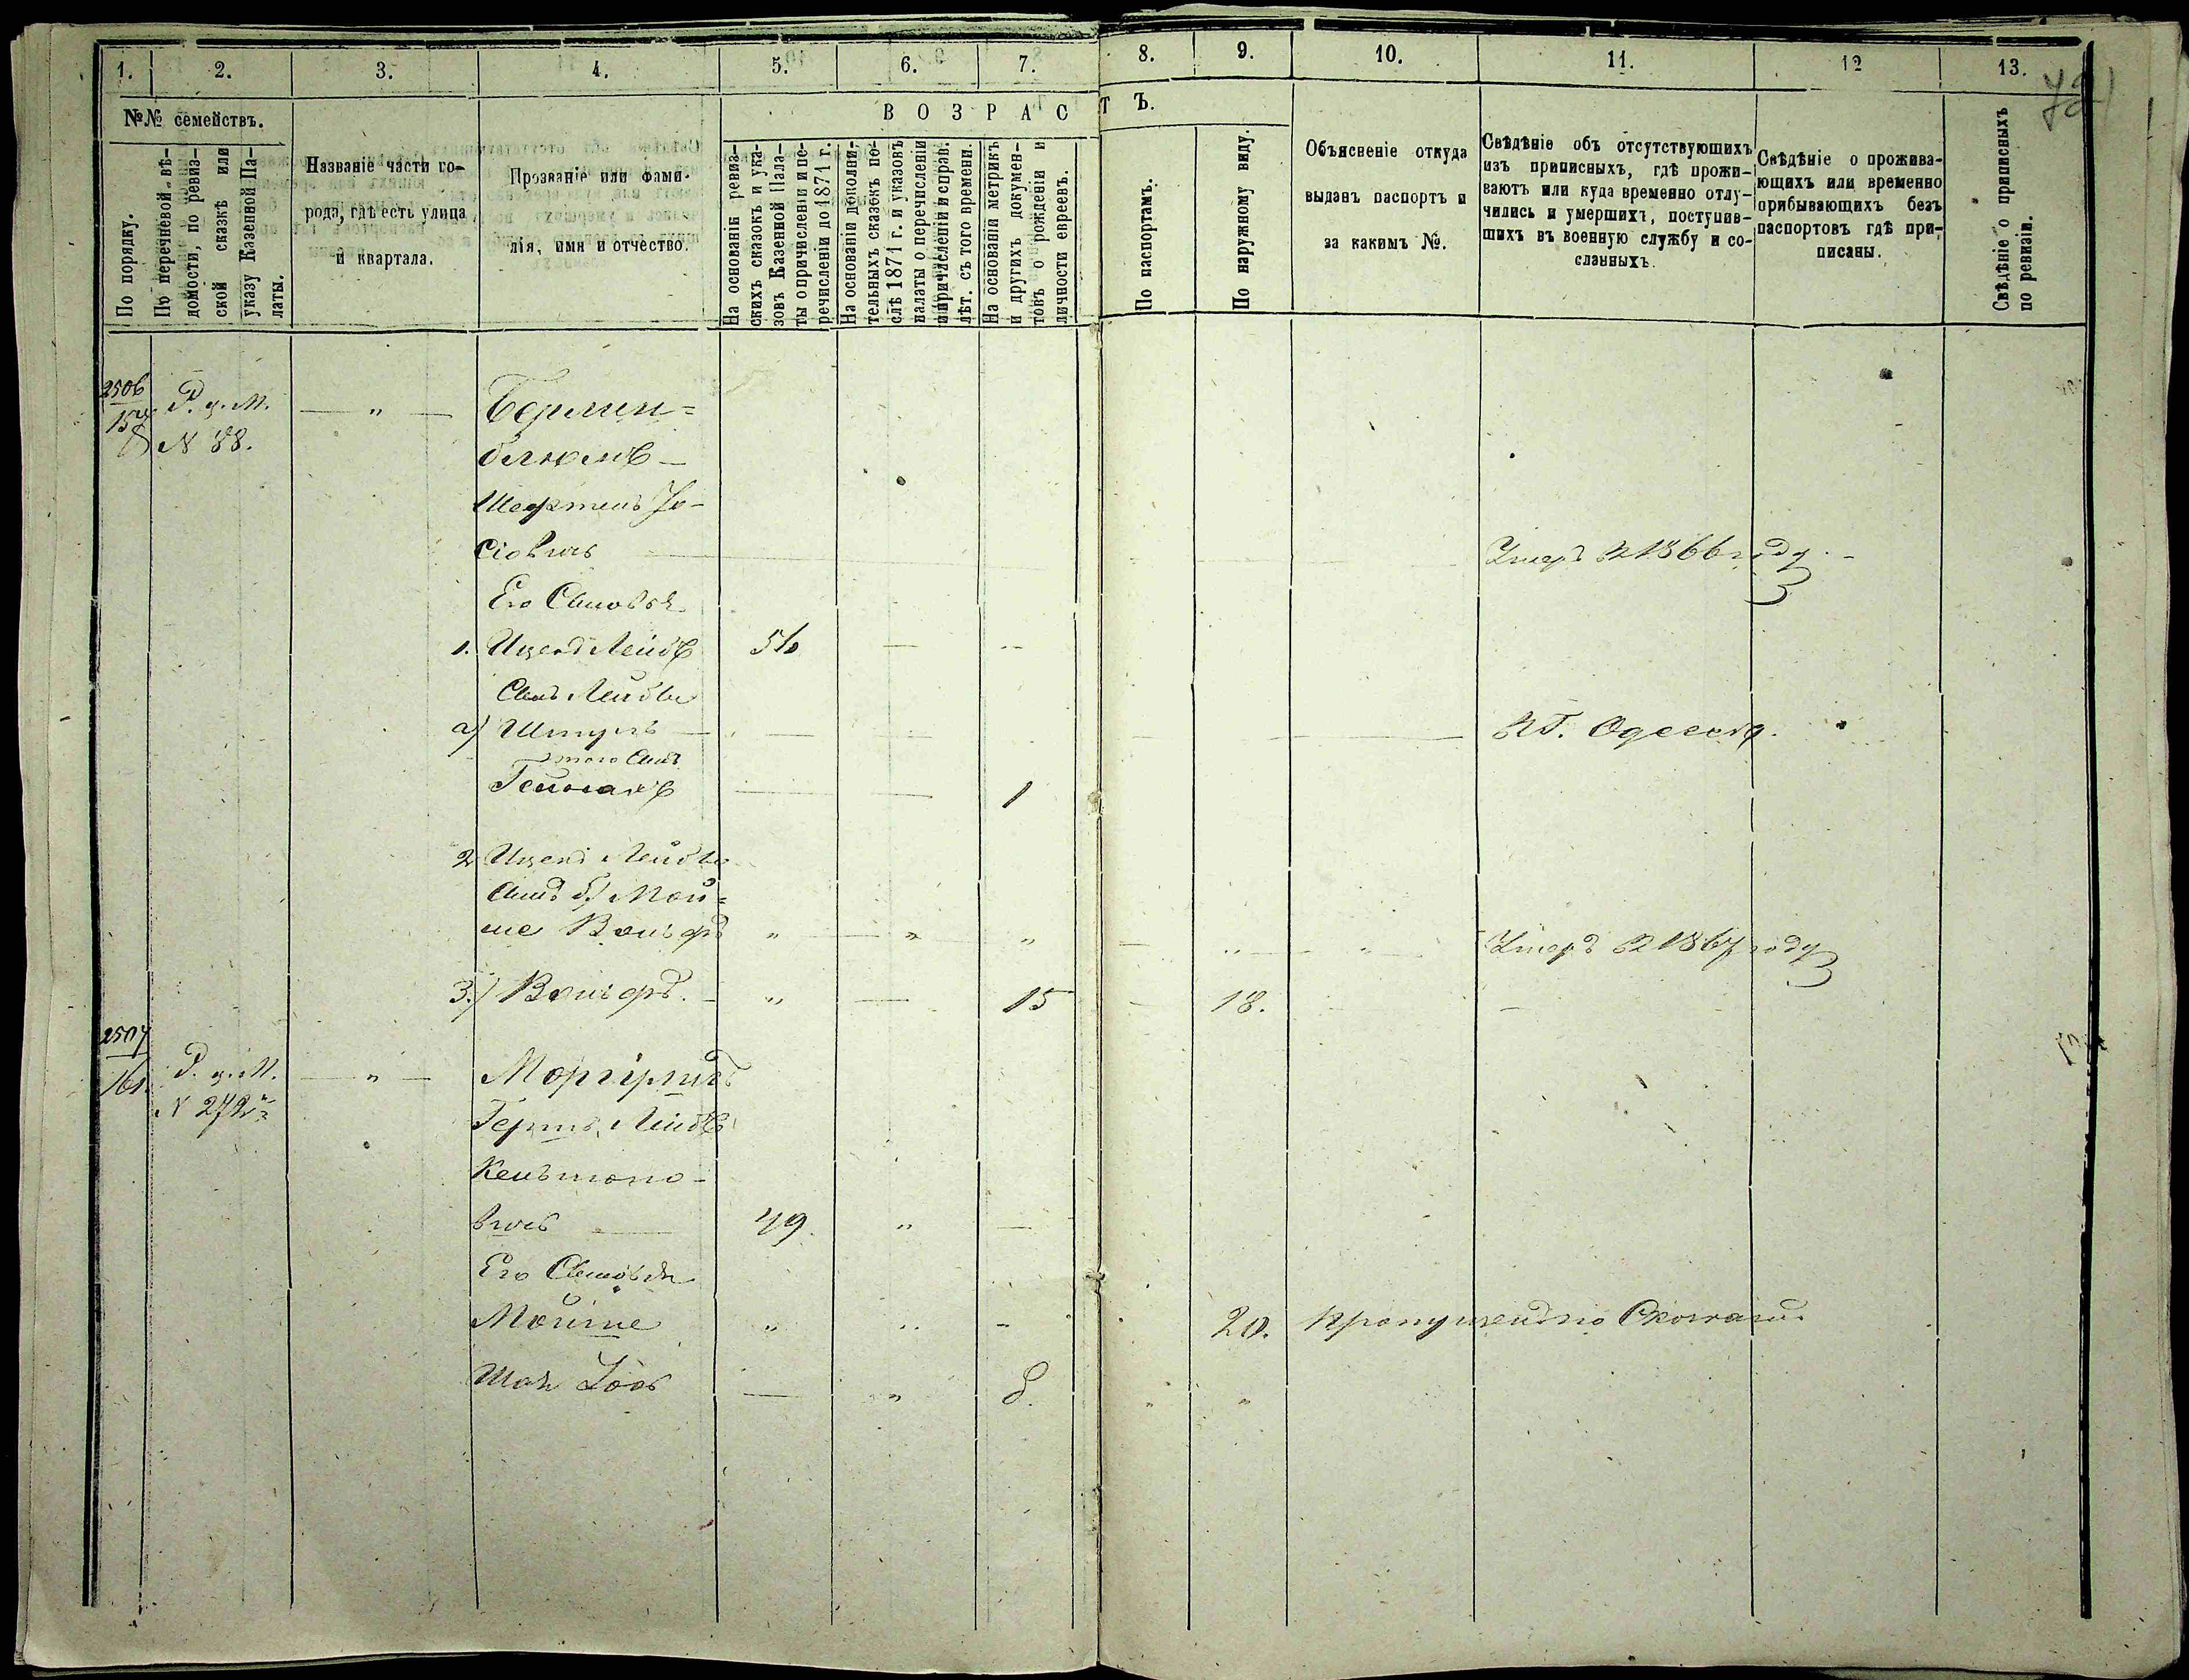 1. 2. 3. 4. 5. 6. 7. 8. 9. 10. 11. 12 13.
№№ семействъ.
По порядку.
По перечневой вѣ-
домости, по ревиз-
ской сказкѣ или
указу Казенной Па-
латы.
Названіе части го-
рода, гдѣ есть улица
и квартала.
Прозваніе или фами-
лія, имя и отчество.
ВОЗРАСТЪ.
На основаніи ревиз-
скихъ сказокъ и ука-
зовъ Казенной Пала-
ты о причисленіи и пе-
речисленіи до 1871 г.
На основаніи дополни-
тельныхъ сказокъ по-
слѣ 1871 г. и указовъ
палаты о перечисленіи
и причисленіи и справ.
лѣт. съ того времени.
На основаніи метрикъ
и другихъ докумен-
товъ о рожденіи и
личности евреевъ.
По паспортамъ.
По наружному виду.
Объясненіе откуда
выданъ паспортъ и
за какимъ №.
Свѣдѣніе объ отсутствующихъ
изъ приписныхъ, гдѣ прожи-
ваютъ или куда временно отлу-
чились и умершихъ, поступив-
шихъ въ военную службу и со-
сланныхъ.
Свѣдѣніе о прожива-
ющихъ или временно
прибывающихъ безъ
паспортовъ гдѣ при-
писаны.
Свѣдѣніе о приписныхъ
по ревизіи.
2506 Р. д. М. — " — Берлин=
N 88.
Іо-
сіовичъ Умеръ в 1866 году.
Его Сыновья
1. Ицекъ Лейбъ 56 — --
Сынъ Лейбы
а) Шмуль — — — — в Г. Одессѣ.
этого Сынъ
— — 1
2 Ицекъ Лейбы
Сынъ б) Мой=
ше Вольфъ " " " " " Умеръ в 1867 году
3.) Вольфъ. " — 15 — 18. —
2507
161. Р. д. М. — " —
N 272
Герш Лейбъ
вичъ 49. " —
Его Сыновья
Мойше " " - 20.
— " 8. " "